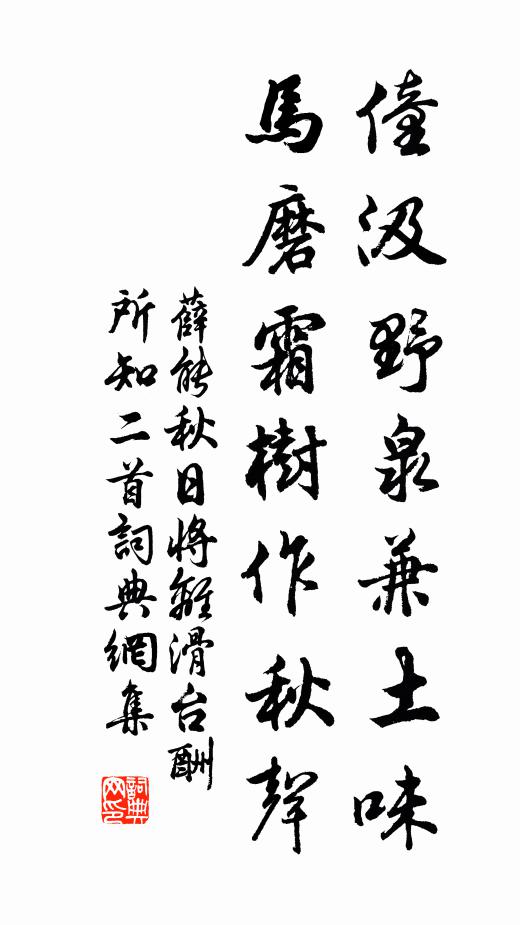 僮汲野泉兼土味
馬磨霜樹作秋聲
薛能秋日將離滑台酬
所知二首詞典網集
詞典
网印